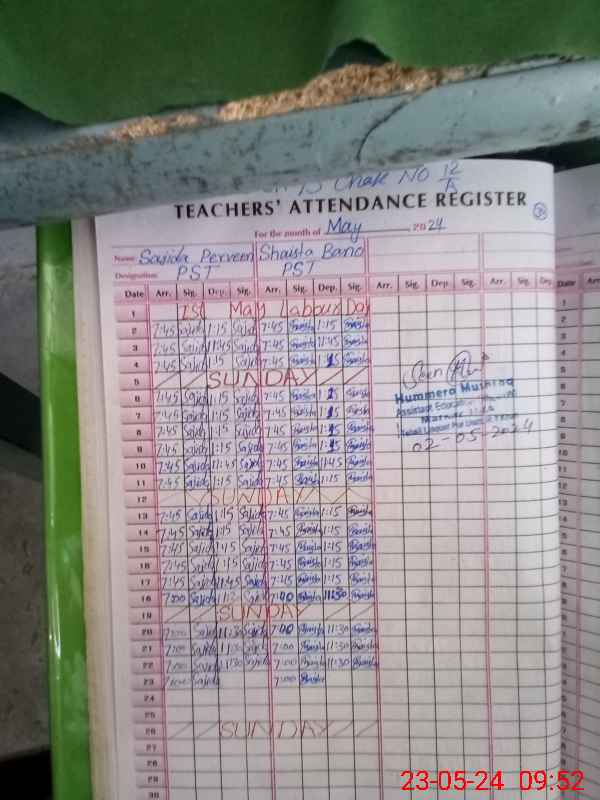 Chak No 12/A
TEACHERS' ATTENDANCE REGISTER
For the month of May 2024
Name Sajida Perveen Shaista Bano
Designation: PST PST
Date Arr. Sig. Dep. Sig. Arr. Sig. Dep. Sig. Arr. Sig. Dep. Sig. Arr. Sig. Dep. Date Arr.
1 1st May Labour Day
2 7:45 Sajida 1:15 Sajida 7:45 Shaista 1:15 Shaista
3 7:45 Sajida 11:45 Sajida 7:45 Shaista 11:45 Shaista
4 7:45 Sajida 1:15 Sajida 7:45 Shaista 1:15 Shaista
5 SUNDAY
6 7:45 Sajida 1:15 Sajida 7:45 Shaista 1:15 Shaista
7 7:45 Sajida 1:15 Sajida 7:45 Shaista 1:15 Shaista
Hummera Mushtaq
8 7:45 Sajida 1:15 Sajida 7:45 Shaista 1:15 Shaista
02-05-2024
9 7:45 Sajida 1:15 Sajida 7:45 Shaista 1:15 Shaista
10 7:45 Sajida 11:45 Sajida 7:45 Shaista 11:45 Shaista
11 7:45 Sajida 1:15 Sajida 7:45 Shaista 1:15 Shaista
12 SUNDAY
13 7:45 Sajida 1:15 Sajida 7:45 Shaista 1:15 Shaista
14 7:45 Sajida 1:15 Sajida 7:45 Shaista 1:15 Shaista
15 7:45 Sajida 1:15 Sajida 7:45 Shaista 1:15 Shaista
16 7:45 Sajida 1:15 Sajida 7:45 Shaista 1:15 Shaista
17 7:45 Sajida 11:45 Sajida 7:45 Shaista 11:15 Shaista
18 7:00 Sajida Sajida 7:00 Shaista 11:30 Shaista
19 SUNDAY
20 7:00 Sajida 11:30 Sajida 7:00 Shaista 11:30 Shaista
21 7:00 Sajida 11:30 Sajida 7:00 Shaista 11:30 Shaista
22 7:00 Sajida 11:30 Sajida 7:00 Shaista 11:30 Shaista
23 7:00 Sajida 7:00 Shaista
24
25
26 SUNDAY
27
28
29
30
23-05-24 09:52